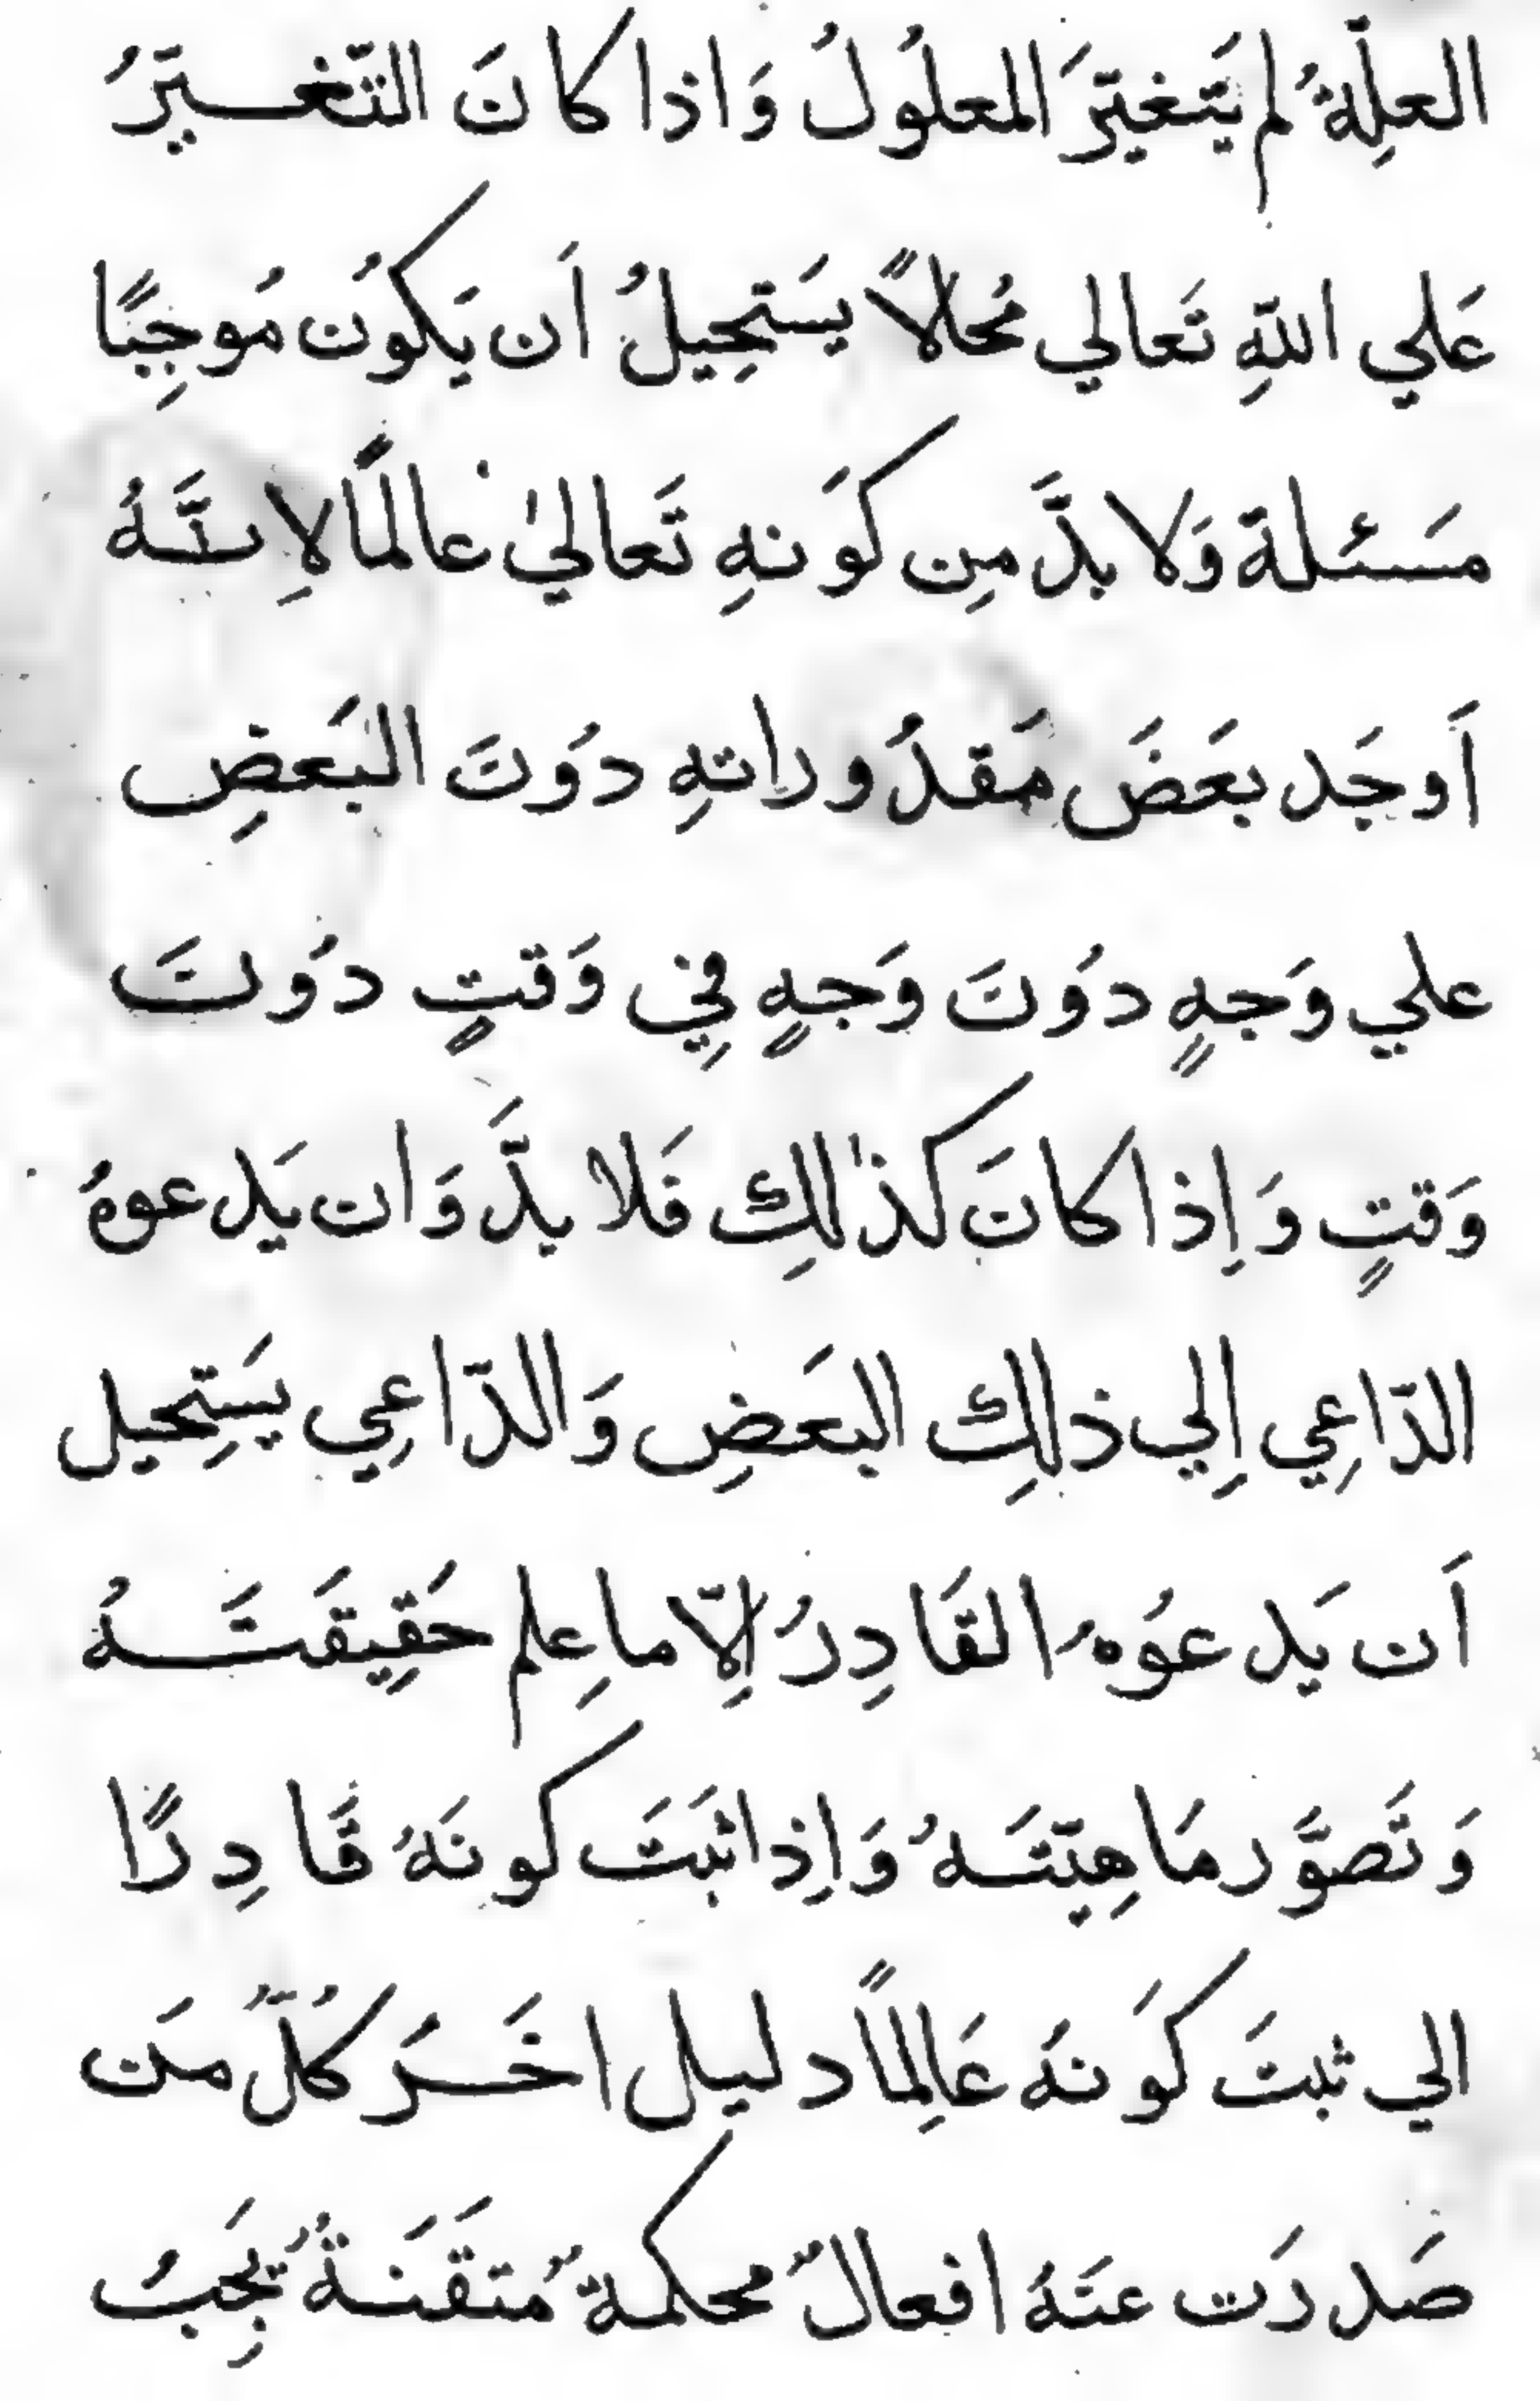 العلِّةُ لم يَتغيّرَ المعلُولُ وَاذا كانَ التّغيّرُ
عَلي اللّهِ تَعالي مُحالاً يسَتحِيلُ اَن يَكوُن مُوجِبًا
مَسئلة وَلا بدَّ مِن كوَنهِ تَعاليٰ عالمًا لاِنَّهُ
اَوجَد بعَضَ مَقدُوراتهِ دوُنَ البَعضِ
علي وَجهٍ دوُنَ وَجهٍ فِي وَقتٍ دوُنَ
وَقتٍ وَاِذا كانَ كذٰلكِ فَلا بدَّ وَان يَدعوهُ
الدّاعِي اِلي ذلكِ البعَضِ وَالدّاعِي يسَتِحيل
اَن يَدعوُهُ القَادِرُ اِلاّ ما عِلم حَقِيقَتَهُ
وَتَصوَّر مَاهِيّتَهُ وَاِذا ثبَتَ كونَهُ قَادِرًا
الي ثبتَ كوَنهُ عَالِماً دليل اخَرَ كُلُّ مَن
صَدرَت عنَهُ افعالٌ محكمةٌ مُتقَنَةٌ يَجِبُ